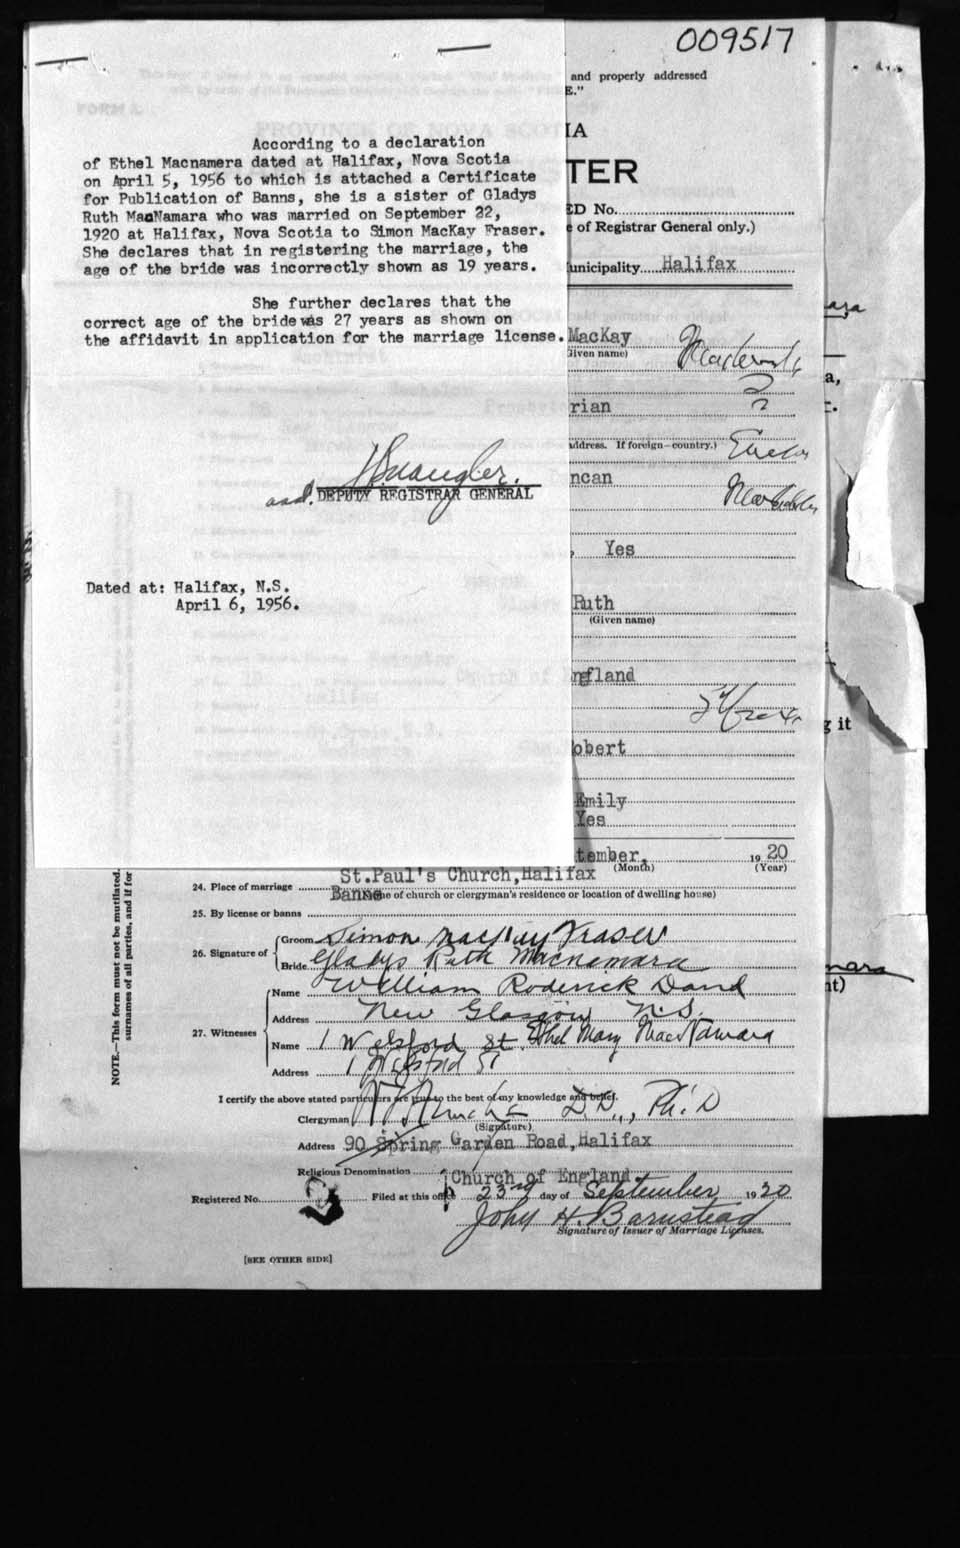 009517
According to a declaration
of Ethel Macnamera dated at Halifax, Nova Scotia
on April 5, 1956 to which is attached a Certificate
for Publication of Banns, she is a sister of Gladys
Ruth MacNamara who was married on September 22,
1920 at Halifax, Nova Scotia to Simon MacKay Fraser.
She declares that in registering the marriage, the
age of the bride was incorrectly shown as 19 years.
She further declares that the
correct age of the bride was 27 years as shown on
the affidavit in application for the marriage license.
DEPUTY REGISTRAR GENERAL
Dated at: Halifax, N.S.
April 6, 1956.
and properly addressed
E."
IA
TER
ED No.
e of Registrar General only.)
unicipality Halifax
MacKay
(Given name)
rian
ddress. If foreign—country.)
ncan
Yes
Ruth
(Given name)
ngland
obert
Emily
Yes
tember, 1920
(Month) (Year)
24. Place of marriage St.Paul's Church,Halifax
Banns
me of church or clergyman's residence or location of dwelling house)
25. By license or banns
26. Signature of
Groom Simon MacKay Fraser
Bride Gladys Ruth Macnamara
27. Witnesses
Name William Roderick Dand
Address New Glasgow N.S.
Name 1 Welsford St. Ethel Mary MacNamara
Address 1 Welsford St
I certify the above stated particulars are true to the best of my knowledge and belief.
Clergyman D.D., Ph.D
(Signature)
Address 90 Spring Garden Road,Halifax
Religious Denomination Church of England.
Registered No. Filed at this office 23rd day of September 1920
John H. Barnstead
Signature of Issuer of Marriage Licenses.
[SEE OTHER SIDE]
NOTE.—This form must not be mutilated.
surnames of all parties, and if for
a,
g it
nt)